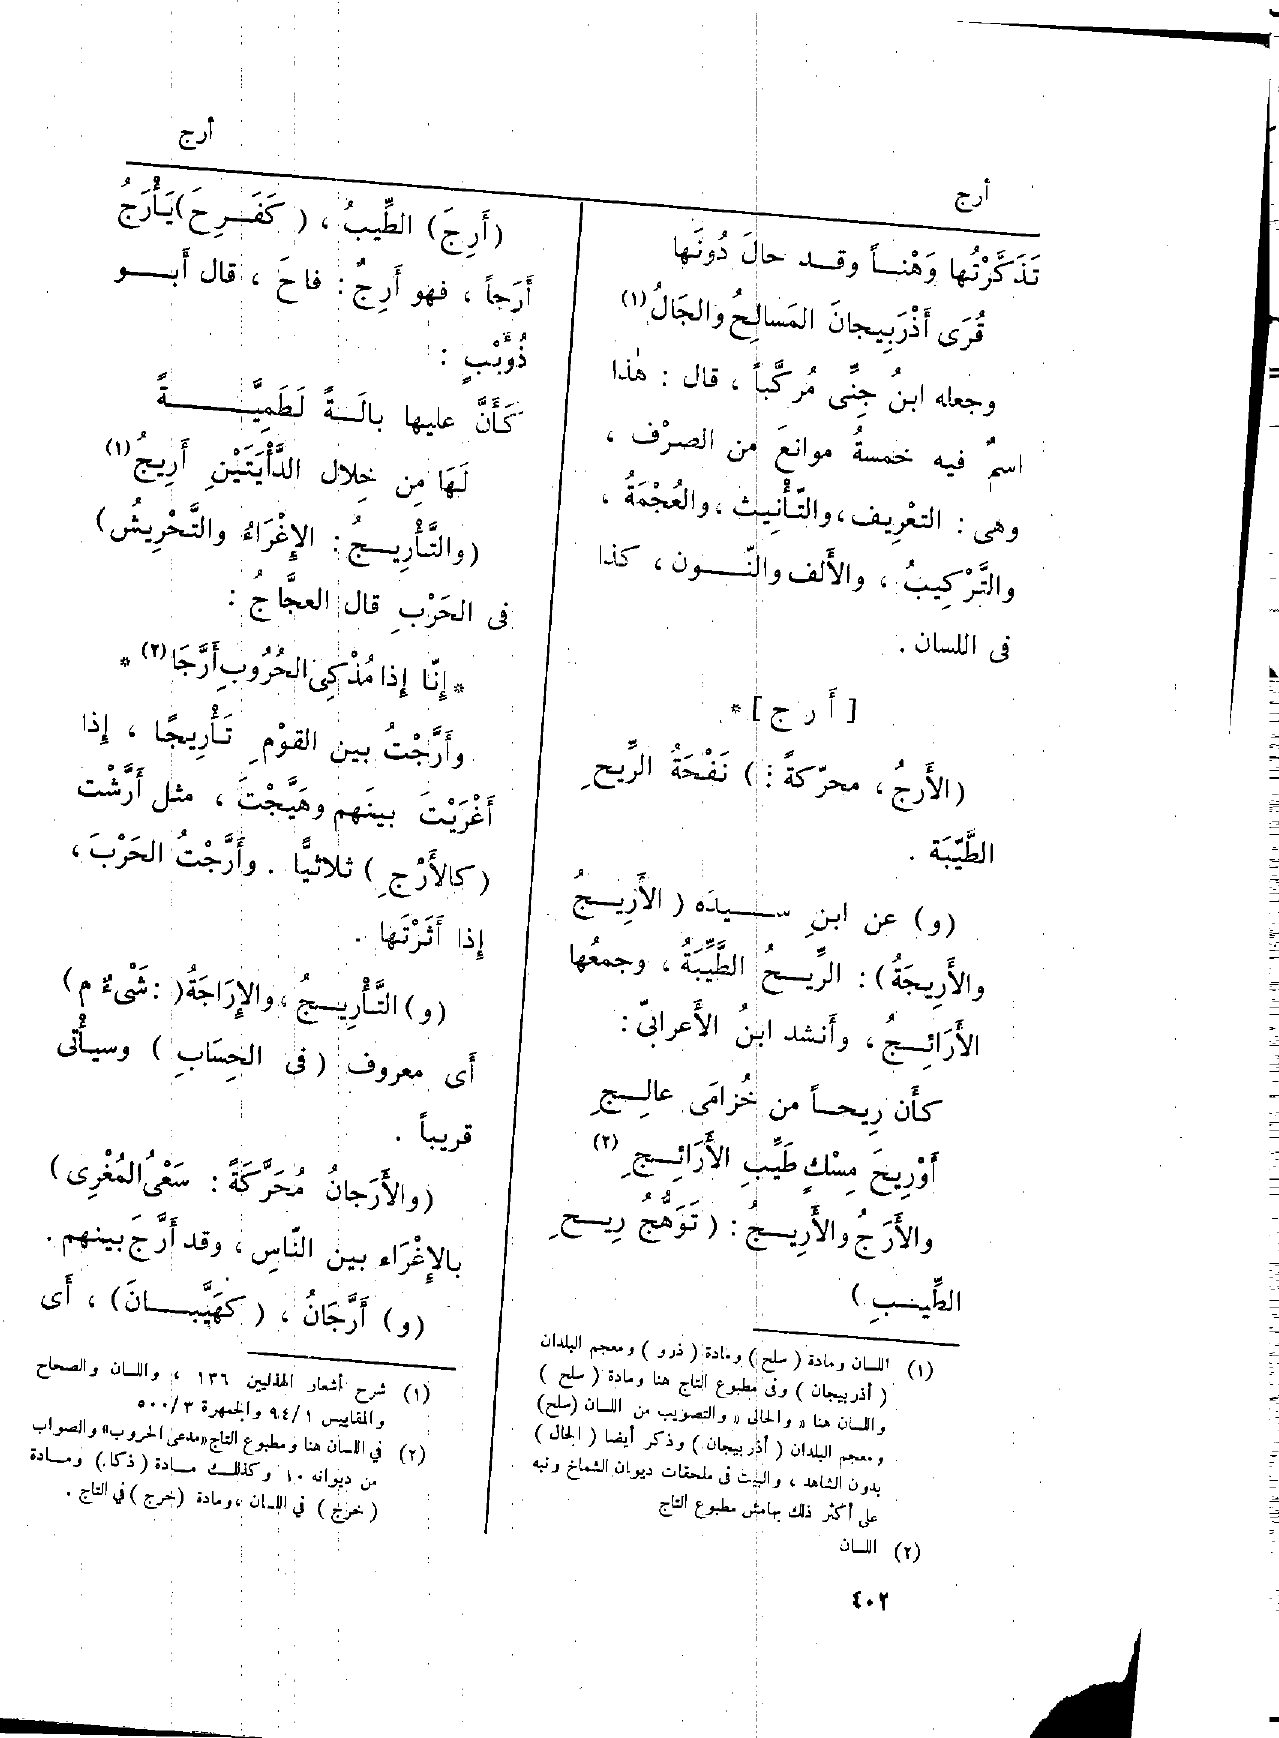 أرج
أرج
تَذَكَّرْتُها وَهْنــاً وقــد حالَ دُونَها
قُرَى أَذْرَبِيجانَ المَسالِحُ والجَالُ (١)
وجعله ابنُ جِنِّى مُركَّباً ، قال : هٰذا
اسمٌ فيه خمسةُ موانعَ من الصرْف ،
وهى : التعْرِيف، والتَّأْنِيث ، والعُجْمَةُ ،
والتَّرْكِيبُ ، والأَلف والنّــون ، كذا
فى اللسان .
[ أ ر ج ] *
(الأَرجُ ، محرّكةً : ) نَفْحَةُ الرِّيحِ
الطَّيِّبَة .
(و) عن ابنِ ســيدَه ( الأَرِيــجُ
والأَرِيجَةُ) : الرِّيــحُ الطَّيِّبَةُ ، وجمعُها
الأَرَائِــجُ ، وأَنشد ابنُ الأَعرابىّ :
كأَن رِيحــاً من خُزامَى عالِــجِ
أَوْرِيحَ مِسْكٍ طَيِّبِ الأَرَائِــجِ (٢)
والأَرَجُ والأَرِيــجُ : ( تَوَهُّجُ رِيــحِ
الطِّيــبِ )
(١) اللسان ومادة ( سلح ) ومادة ( ذرو ) ومعجم البلدان
( أذربيجان ) وفى مطبوع التاج هنا ومادة ( سلح )
واللسان هنا « والحالى » والتصويب من اللسان (سلح)
ومعجم البلدان ( أذربيجان ) وذكر أيضا ( الجال )
بدون الشاهد ، والبيت فى ملحقات ديوان الشماخ ونبه
على أكثر ذلك بهامش مطبوع التاج
(٢) اللسان
(أَرِجَ) الطِّيبُ ، ( كَفَــرِحَ) يَأْرَجُ
أَرَجاً ، فهو أَرِجٌ : فاحَ ، قال أَبــو
ذُؤَيْبٍ :
كَأَنَّ عليها بالَــةً لَطَمِيَّــــةً
لَهَا مِن خِلال الدَّأْيَتَيْنِ أَرِيجُ (١)
(والتَّأْرِيــجُ : الإِغْرَاءُ والتَّحْرِيشُ)
فى الحَرْبِ قال العجَّاجُ :
* إِنّا إِذا مُذْكِى الحُرُوبِ أَرَّجَا (٢) *
وأَرَّجْتُ بين القوْمِ تَأْرِيجًا ، إِذا
أَغْرَيْتَ بينَهم وهَيَّجْتَ ، مثل أَرَّشْت
(كالأَرْجِ ) ثلاثيًّا . وأَرَّجْتُ الحَرْبَ ،
إِذا أَثَرْتَها .
(و) التَّأْرِيــجُ ، والإِرَاجَةُ( : شَىْءٌ م )
أَى معروف ( فى الحِسَابِ ) وسيأْتى
قريباً .
(والأَرَجانُ مُحَرَّكَةً : سَعْىُ المُغْرِى )
بالإِغْرَاء بين النّاسِ ، وقد أَرَّجَ بينهم .
(و) أَرَّجَانُ ، ( كهَيَّبــانَ) ، أَى
(١) شرح أشعار الهذليين ١٣٦ ، واللسان والصحاح
والمقاييس ٩٤/١ والجمهرة ٥٠٠/٣
(٢) فى اللسان هنا ومطبوع التاج «مدعى الحروب» والصواب
من ديوانه ١٠ وكذلك مــادة (ذكا) ومــادة
( خرج ) فى اللسان ، ومادة (خرج ) فى التاج .
٤٠٢